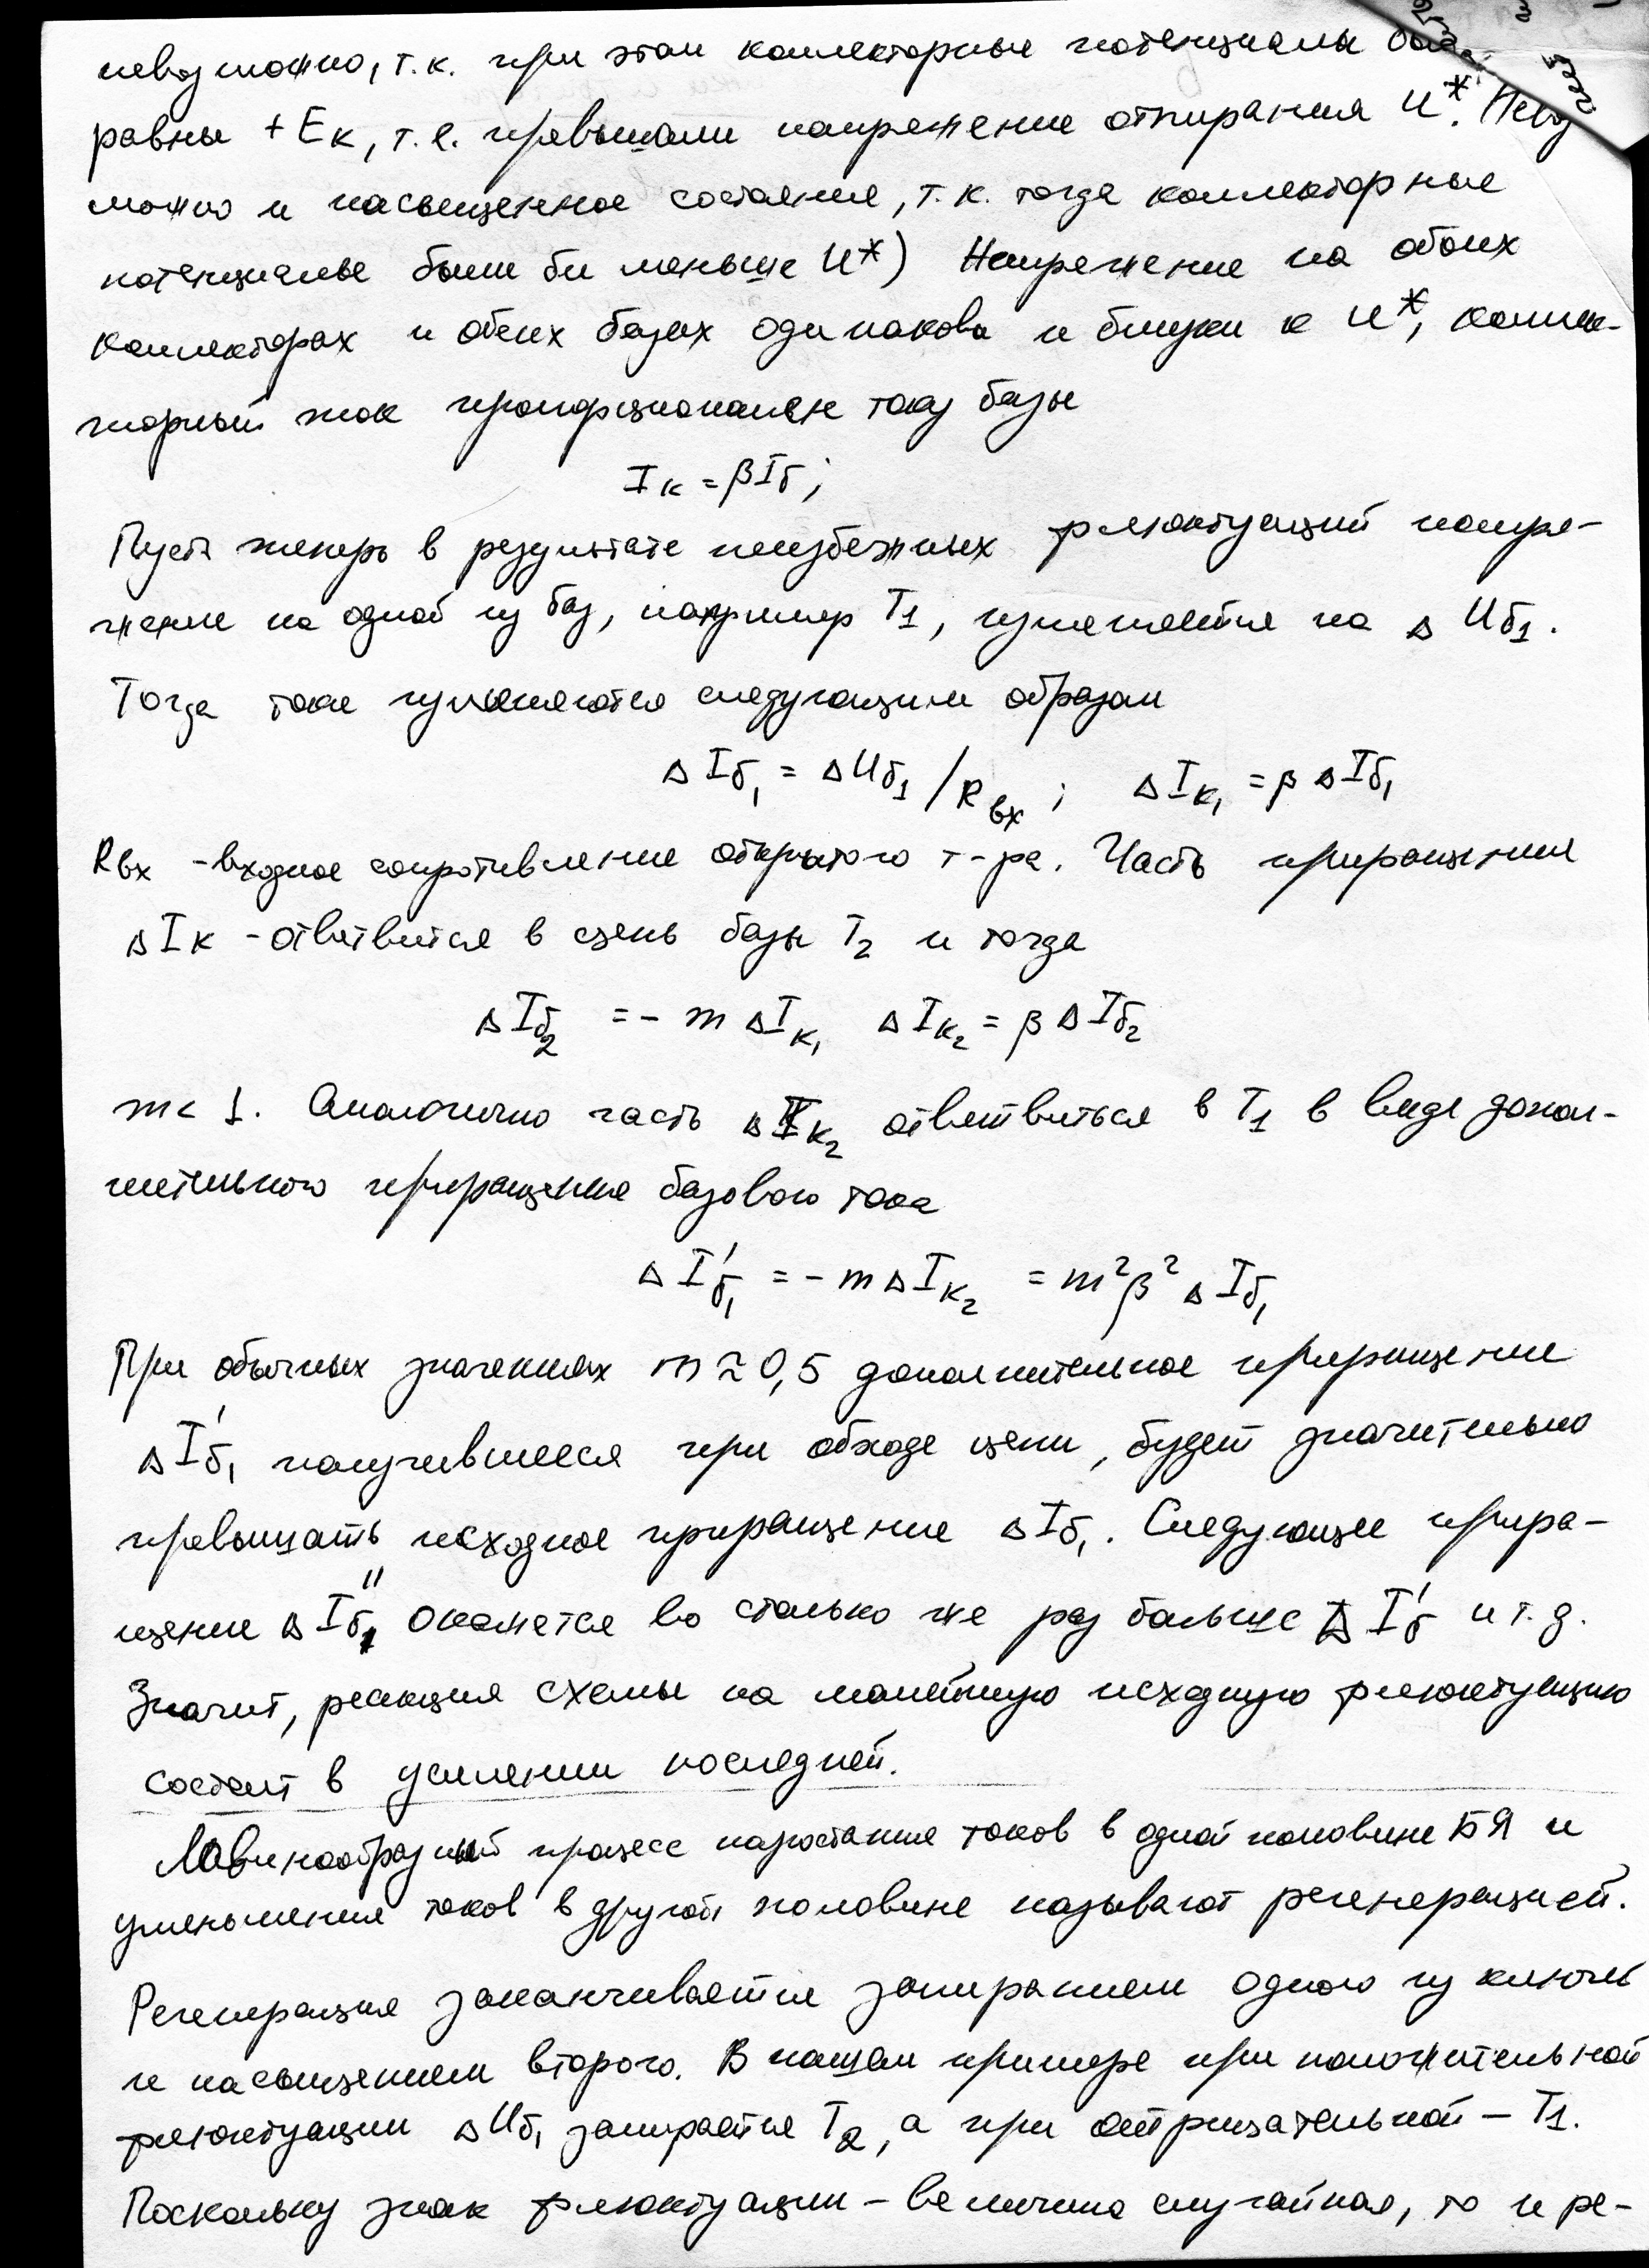 невозможно, т.к. при этом коллекторные потенциалы
равны + Eк, т.е. превышали напряжение отпирания U*. Невоз
можно и насыщенное состояние, т.к. тогда коллекторные
потенциалы были бы меньше U*) Напряжение на обоих
коллекторах и обеих базах одинаковы и близки к U*, коллек-
торный ток пропорционален току базы
Iк = βIб;
Пусть теперь в результате неизбежных флюктуаций напря-
жение на одной из баз, например T1, изменяется на Δ Uб1.
Тогда токи изменяются следующим образом
ΔIб1 = ΔUб1 / Rвх ; ΔIк1 = β ΔIб1
Rвх - входное сопротивление открытого т-ра. Часть приращения
ΔIк - ответвится в цепь базы T2 и тогда
ΔIб2 = - m ΔIк1 ΔIк2 = β ΔIб2
m < 1. Аналогично часть ΔIк2 ответвиться в T1 в виде допол-
нительного приращения базового тока
ΔI'б1 = - m ΔIк2 = m²β² ΔIб1
При обычных значениях m ≈ 0,5 дополнительное приращение
ΔI'б1 получившееся при обходе цепи, будет значительно
превышать исходное приращение ΔIб1. Следующее прира-
щение ΔI''б1 окажется во столько же раз больше ΔI'б и т.д.
Значит, реакция схемы на малейшую исходную флюктуацию
состоит в усилении последней.
Лавинообразный процесс нарастания токов в одной половине БЯ и
уменьшения токов в другой половине называют регенерацией.
Регенерация заканчивается запиранием одного из ключей
и насыщением второго. В нашем примере при положительной
флюктуации ΔUб1 запирается T2, а при отрицательной - T1.
Поскольку знак флюктуации - величина случайная, то и ре-